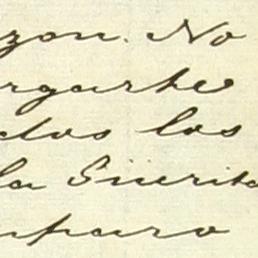 zon. No
rgarte
dos los
la Güerita
mparo